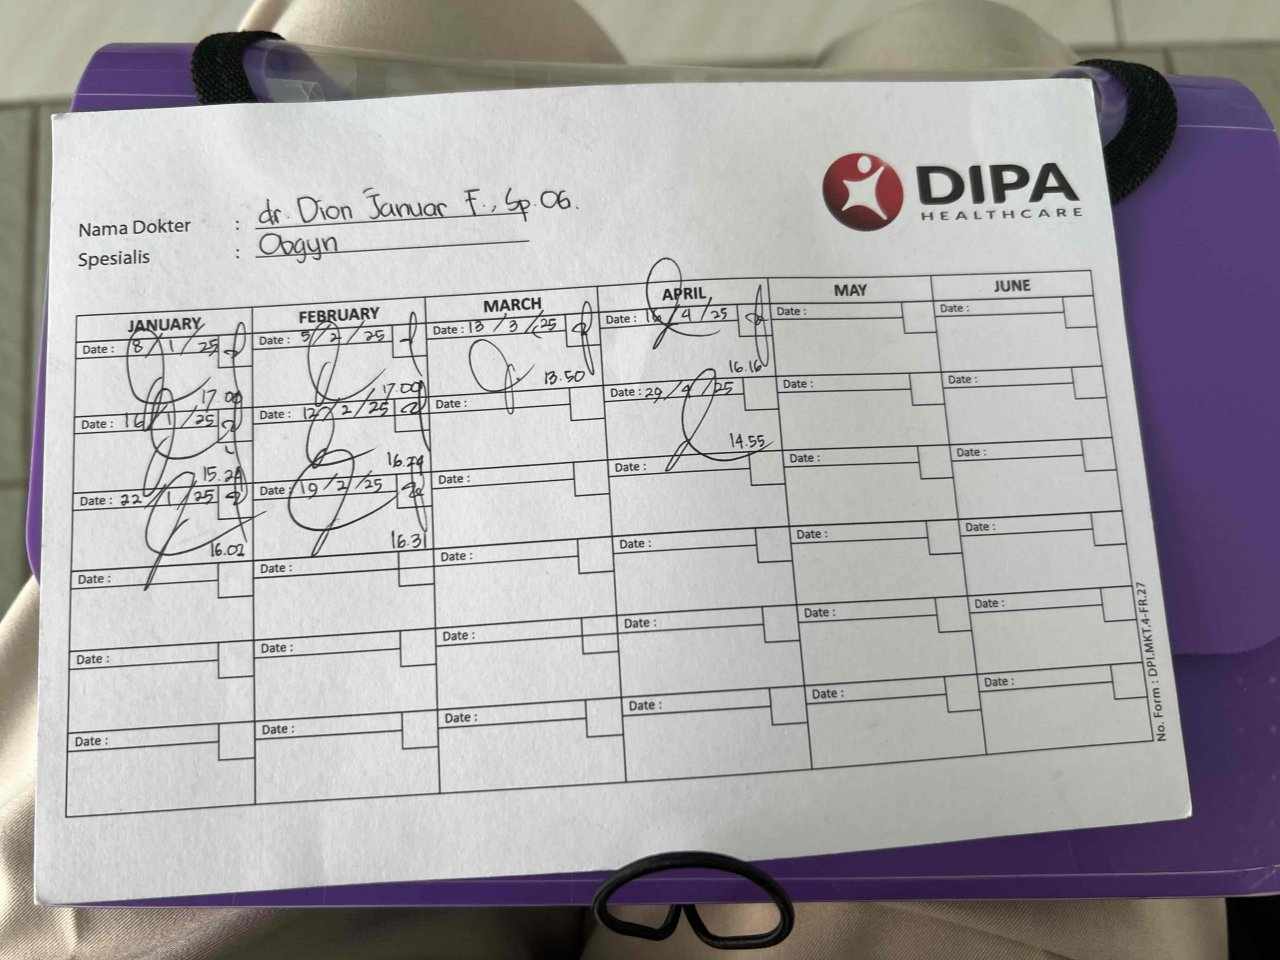 DIPA
HEALTHCARE
Nama Dokter : dr. Dion Januar F., Sp.OG.
Spesialis : Obgyn
JANUARY FEBRUARY MARCH APRIL MAY JUNE
Date : 8/1/25 Date : 5/2/25 Date : 13/3/25 Date : 16/4/25 Date : Date :
17.00 17.00 13.50 16.16
Date : 16/1/25 Date : 12/2/25 Date : Date : 29/4/25 Date : Date :
15.29 16.29 14.55
Date : 22/1/25 Date : 19/2/25 Date : Date : Date : Date :
16.02 16.31
Date : Date : Date : Date : Date : Date :
Date : Date : Date : Date : Date : Date :
Date : Date : Date : Date : Date : Date :
No. Form : DPI.MKT.4-FR.27